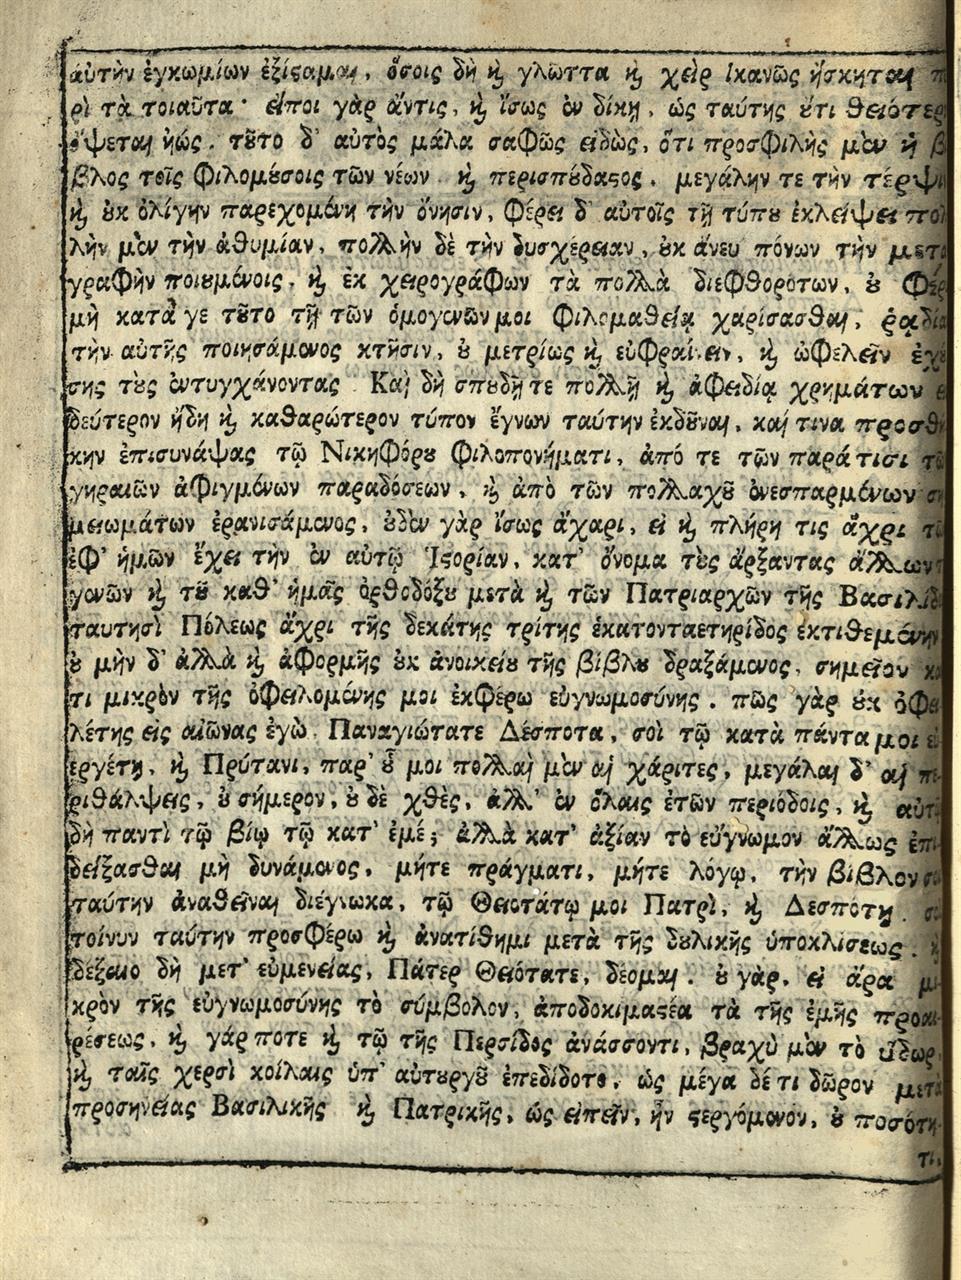 αὐτὴν ἐγκωμίων ἐξίςαμαι, ὅσοις δὴ ϗ γλῶττα ϗ χεὶρ ἱκανῶς ἤσκηται π
ρὶ τὰ τοιαῦτα· εἴποι γὰρ ἄντις, ϗ ἴσως ἐν δίκῃ, ὡς ταύτης ȣ̓τι θειότερ
ὄψεται ἠώς. τȣ͂το δ' αὐτὸς μάλα σαφῶς εἰδὼς, ὅτι προσφιλὴς μὲν ἡ β
βλος τοῖς φιλομȣ́σοις τῶν νέων ϗ περισπȣ́δαςος, μεγάλην τε τὴν τέρψι
ϗ ȣ̓κ ὀλίγην παρεχομένη τὴν ὄνησιν, φέρει δ' αὐτοῖς τῇ τύπȣ ἐκλείψει πολ
λὴν μὲν τὴν ἀθυμίαν, πολλὴν δὲ τὴν δυσχέρειαν, ȣ̓κ ἄνευ πόνων τὴν μετα
γραφὴν ποιȣμένοις, ϗ ἐκ χειρογράφων τὰ πολλὰ διεφθορότων, ȣ̓ φέρ
μὴ κατά γε τȣ͂το τῇ τῶν ὁμογενῶν μοι φιλομαθείᾳ χαρίσασθαι, ῥᾳδία
τὴν αὐτῆς ποιησάμενος κτῆσιν, ȣ̓ μετρίως ϗ εὐφραίνειν, ϗ ὠφελεῖν ἐχȣ́
σης τȣ̀ς ἐντυγχάνοντας. Καὶ δὴ σπȣδῇ τε πολλῇ ϗ ἀφειδίᾳ χρημάτων ε
δεύτερον ἤδη ϗ καθαρώτερον τύπον ἔγνων ταύτην ἐκδȣ͂ναι, καί τινα προσθή
κην ἐπισυνάψας τῷ Νικηφόρȣ φιλοπονήματι, ἀπό τε τῶν παρά τισι τῶ
γηραιῶν ἀφιγμένων παραδόσεων, ϗ ἀπὸ τῶν πολλαχȣ͂ ἐνεσπαρμένων ση
μειωμάτων ἐρανισάμενος, ȣ̓δὲν γὰρ ἴσως ἄχαρι, εἰ ϗ πλήρη τις ἄχρι τῶ
ἐφ' ἡμῶν ἔχει τὴν ἐν αὐτῷ Ἱςορίαν, κατ' ὄνομα τȣ̀ς ἄρξαντας ἄλλων τ
γενῶν ϗ τȣ͂ καθ' ἡμᾶς ὀρθοδόξȣ μετὰ ϗ τῶν Πατριαρχῶν τῆς Βασιλίδο
ταυτησὶ Πόλεως ἄχρι τῆς δεκάτης τρίτης ἑκατονταετηρίδος ἐκτιθεμένην
ȣ̓ μὴν δ' ἀλλὰ ϗ ἀφορμῆς ȣ̓κ ἀνοικείȣ τῆς βίβλȣ δραξάμενος, σημεῖον κα
τι μικρὸν τῆς ὀφειλομένης μοι ἐκφέρω εὐγνωμοσύνης. πῶς γὰρ ȣ̓κ ὀφει
λέτης εἰς αἰῶνας ἐγὼ Παναγιώτατε Δέσποτα, σοὶ τῷ κατὰ πάντα μοι ε
εργέτῃ, ϗ Πρύτανι, παρ' ȣ̔͂ μοι πολλαὶ μὲν αἱ χάριτες, μεγάλαι δ' αἱ πε
ριθάλψεις, ȣ̓ σήμερον, ȣ̓ δὲ χθὲς, ἀλλ' ἐν ὅλαις ἐτῶν περιόδοις, ϗ αὐτ
δὴ παντὶ τῷ βίῳ τῷ κατ' ἐμέ; ἀλλὰ κατ' ἀξίαν τὸ εὔγνωμον ἄλλως ἐπι
δείξασθαι μὴ δυνάμενος, μήτε πράγματι, μήτε λόγῳ, τὴν βίβλον σοι
ταύτην ἀναθεῖναι διέγνωκα, τῷ Θειοτάτῳ μοι Πατρὶ, ϗ Δεσπότῃ. σοὶ
τοίνυν ταύτην προσφέρω ϗ ἀνατίθημι μετὰ τῆς δȣλικῆς ὑποκλίσεως. ϗ
δέξαιο δὴ μετ' εὐμενείας, Πάτερ Θειότατε, δέομαι. ȣ̓ γὰρ, εἰ ἄρα μι
κρὸν τῆς εὐγνωμοσύνης τὸ σύμβολον, ἀποδοκιμαςέα τὰ τῆς ἐμῆς προαι
ρέσεως, ϗ γάρ ποτε ϗ τῷ τῆς Περσίδος ἀνάσσοντι, βραχὺ μὲν τὸ ὕδωρ,
ϗ ταῖς χερσὶ κοίλαις ὑπ' αὐτȣργȣ͂ ἐπεδίδοτο, ὡς μέγα δέ τι δῶρον μετὰ
προσηνείας Βασιλικῆς ϗ Πατρικῆς, ὡς εἰπεῖν, ἦν ςεργόμενον, ȣ̓ ποσότη-
τι,